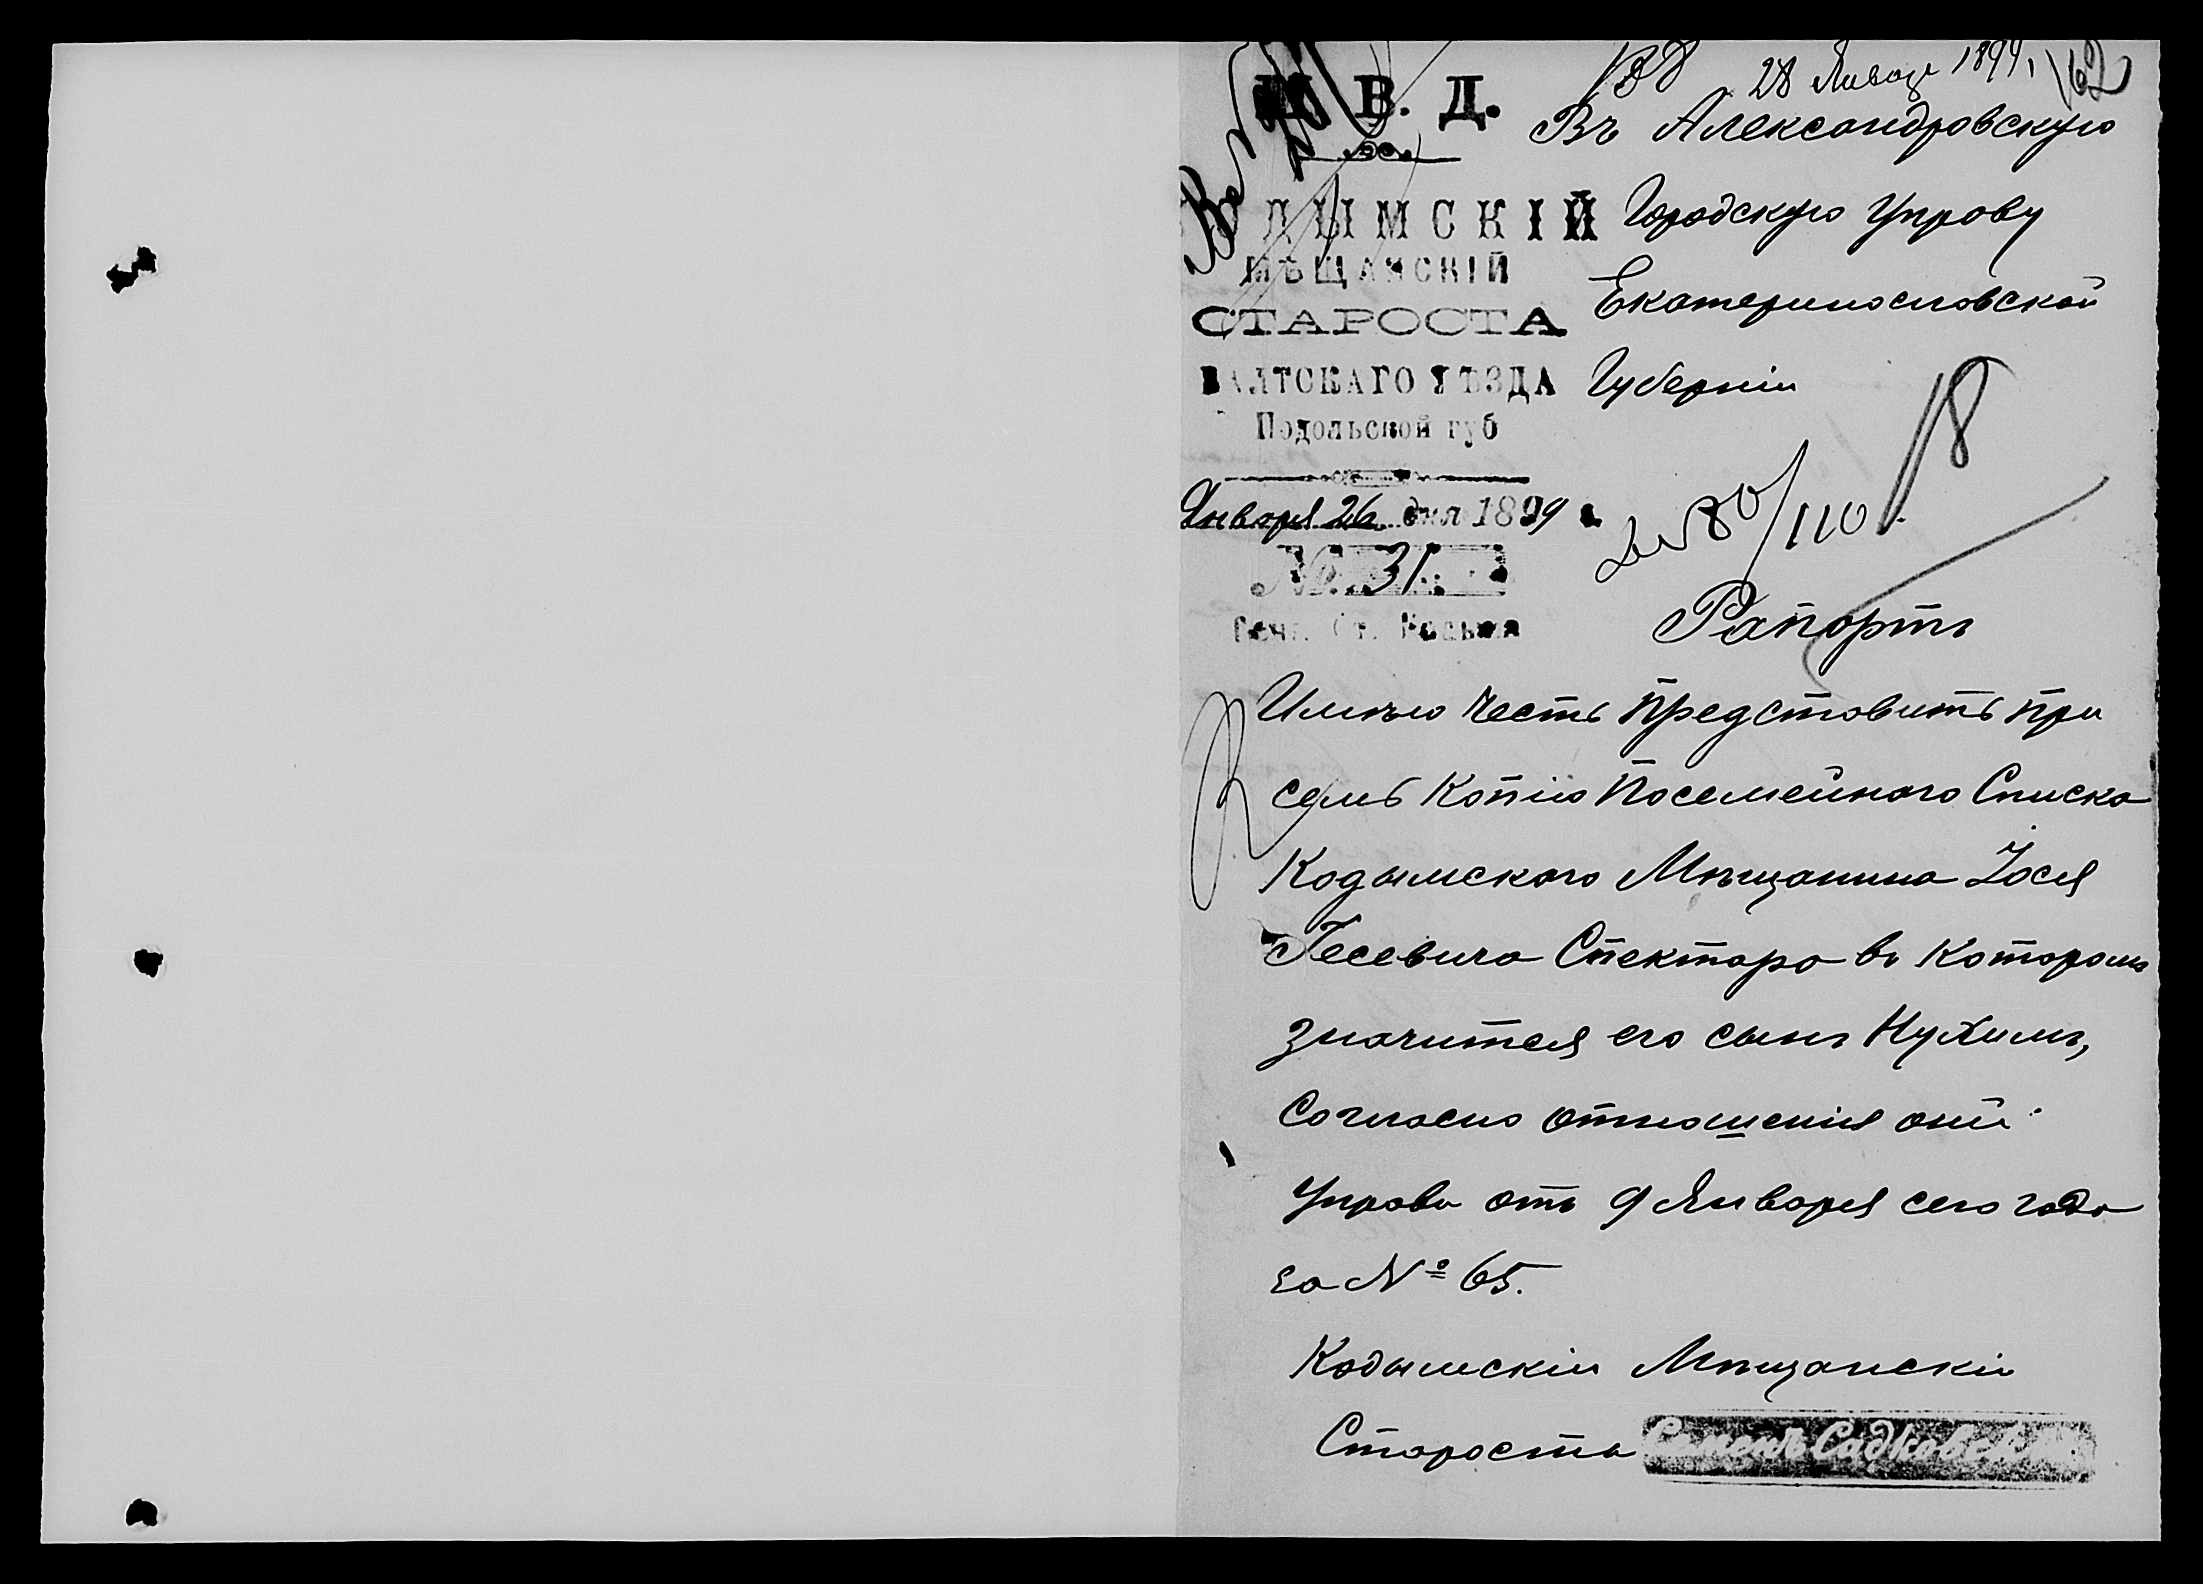 28 Января 1899, 162
В. Д.
Въ Александровскую
ДЫМСКІЙ
Городскую Управу
МѢЩАНСКІЙ
Екатеринославской
СТАРОСТА
БАЛТСКАГО УѢЗДА
Губерніи
Подольской губ
18
Января 26 дня 1899 г.
80/110
№ 31
Рапортъ
Имѣю честь представить при
семъ Копію Посемейнаго Списка
Кодымскаго Мѣщанина Іося
Гесевича Спектара въ которомъ
значится его сынъ Нухимъ,
Согласно отношенія оной
Управы отъ 9 Января сего года
за № 65.
Кодымскій Мѣщанскій
Староста Семенъ Садковскій